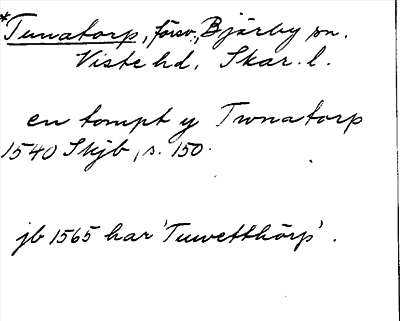 *Tunatorp, försv., Bjärby sn.
Viste hd. Skar. l.
en tompt y Twnatorp
1540 Skjb, s. 150.
jb 1565 har 'Tuwetthörp'.